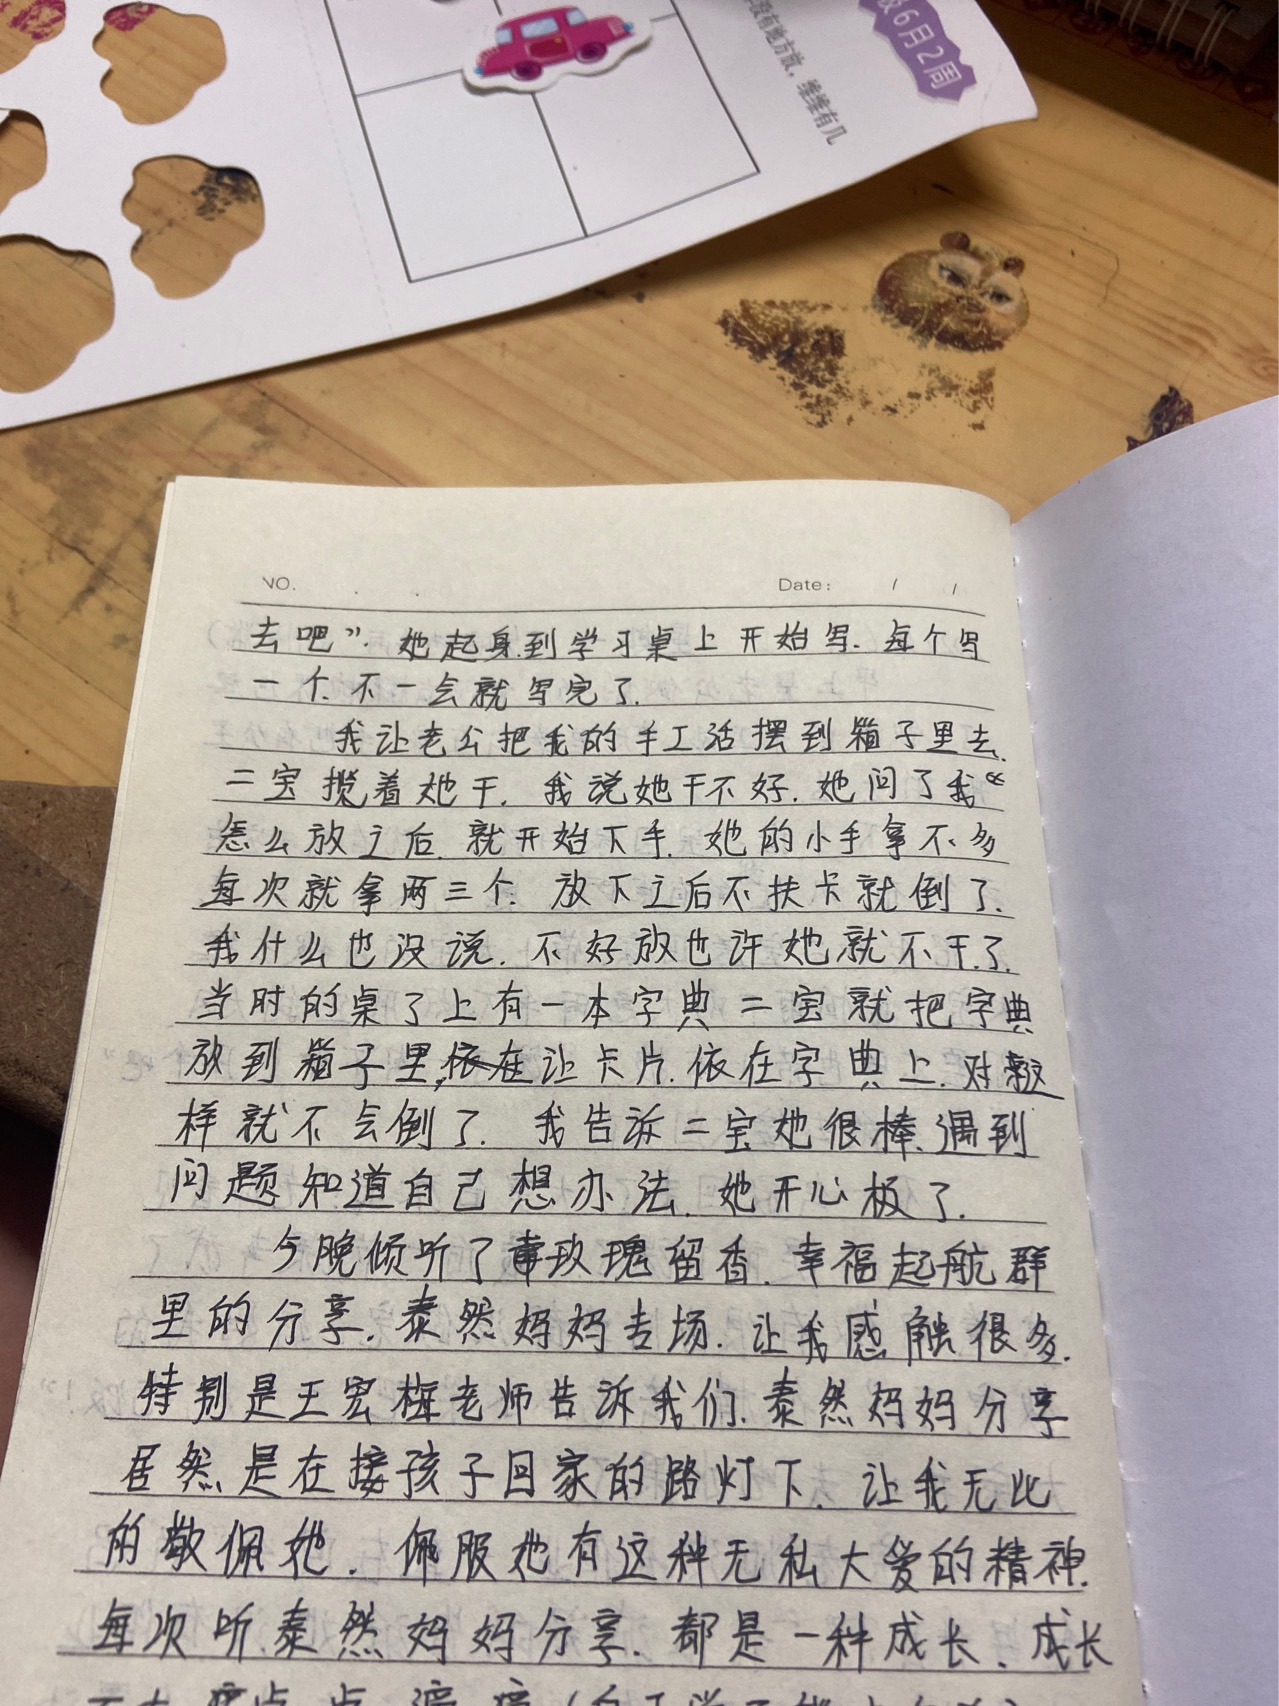 级6月2周
没有地方放，维维有几
NO.
Date:
去吧”. 她起身.到学习桌上开始写. 每个写
一个. 不一会就写完了.
我让老公把我的手工活摆到箱子里去.
二宝揽着她干. 我说她干不好. 她问了我“
怎么放之后. 就开始下手. 她的小手拿不多
每次就拿两三个. 放下之后不扶卡就倒了.
我什么也没说. 不好放也许她就不干了.
当时的桌了上有一本字典 二宝就把字典
放到箱子里,依在让卡片.依在字典上. 对
样就不会倒了. 我告诉二宝她很棒.遇到
问题知道自己想办法. 她开心极了.
今晚倾听了玫瑰留香. 幸福起航群
里的分享. 泰然妈妈专场. 让我感触很多.
特别是王宏梅老师告诉我们. 泰然妈妈分享
居然是在接孩子回家的路灯下. 让我无比
的敬佩她. 佩服她有这种无私大爱的精神.
每次听泰然妈妈分享. 都是一种成长、成长